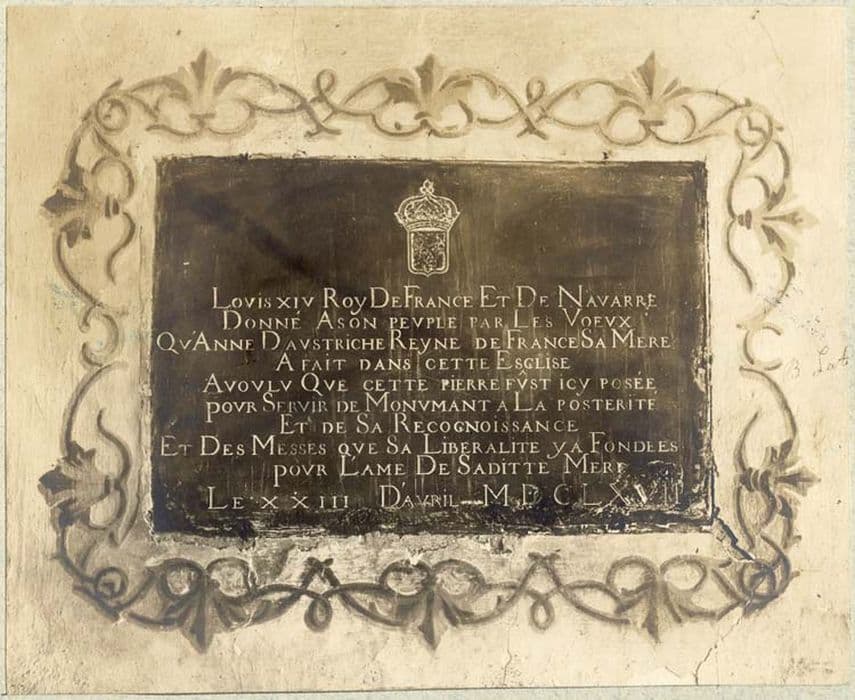 LOVIS XIV ROY DE FRANCE ET DE NAVARRE
DONNÉ A SON PEVPLE PAR LES VOEVX
QV'ANNE D'AVSTRICHE REYNE DE FRANCE SA MERE
A FAIT DANS CETTE ESGLISE
A VOVLV QVE CETTE PIERRE FVST ICY POSÉE
POVR SERVIR DE MONVMANT A LA POSTERITÉ
ET DE SA RECOGNOISSANCE
ET DES MESSES QVE SA LIBERALITÉ Y A FONDEES
POVR L'AME DE SADITTE MERE
LE XXIII D'AVRIL MDCLXVII